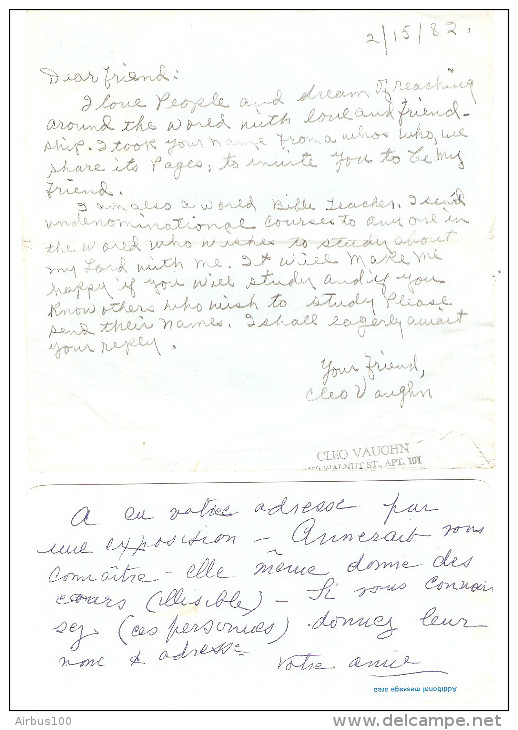 2/15/82.
Dear friend:
I love People and dream of reaching
around the world with love and friend-
ship. I took your name from a whos who, we
share its Pages, to invite you to be my
friend.
I am also a world Bible teacher. I send
undenominational courses to any one in
the world who wishes to study about
my Lord with me. It will make me
happy if you will study and if you
know others who wish to study Please
send their names. I shall eagerly await
your reply.
Your friend,
Cleo Vaughn
CLEO VAUGHN
WALNUT ST., APT. 101
A eu votre adresse par
une exposition - Aimerait vous
connaître - elle même donne des
cours (illisible) - Si vous connais
sez (ces personnes) donnez leur
nom & adresse
Votre amie
Additional message area
Airbus100
www.delcampe.net